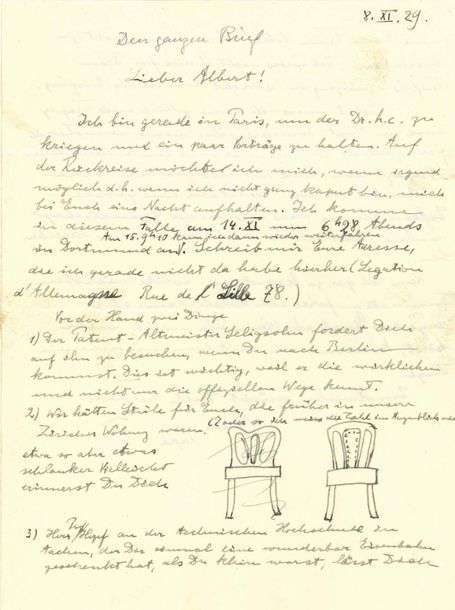 8. XI. 29.
Den ganzen Brief
Lieber Albert!
Ich bin gerade in Paris, um den Dr. h.c. zu
kriegen und ein paar Vorträge zu halten. Auf
der Rückreise möchte ich mich, wenn irgend
möglich d.h. wenn ich nicht ganz kaput bin, mich
bei Euch eine Nacht aufhalten. Ich komme
in diesem Falle am 14. XI um 6h28 Abends
Am 15. 9h10 kann ich dann wieder
in Dortmund an. Schreib mir Eure Adresse,
die ich gerade nicht da habe hierher (Legation
d'Allemagne Rue de Lille 78.)
Vor der Hand zwei Dinge
1) Der Patent-Altmeister Seligsohn fordert Dich
auf ihn zu besuchen, wenn Du nach Berlin
kommst. Dies ist wichtig, weil er die wirklichen
und nicht nur die offiziellen Wege kennt.
2) Wir hätten Stühle für Euch, die früher in unserer
Züricher Wohnung waren. (2 oder so ich weiss die Zahl im Augenblick
etwa so aber etwas
schlanker Vielleicht
erinnerst Du Dich
3) Herr Prof. Hopf an der technischen Hochschule in
Aachen, der Dir einmal eine wunderbar Eisenbahn
geschenkt hat, als Du klein warst, lässt Dich